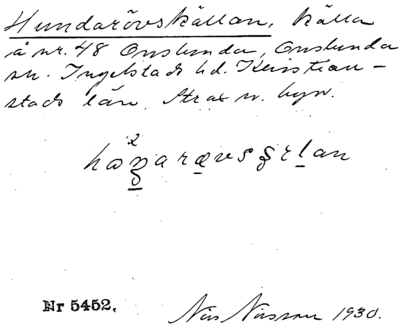 Hundarövskällan, källa
å nr. 48 Onslunda, Onslunda
sn. Ingelstads hd. Kristian-
stads län. Strax n. byn.
Nr 5452.
Nils Nilsson 1930.